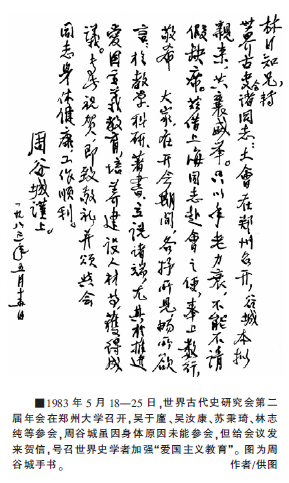 林日知兄,转
世界古史诸同志:大会在郑州召开,谷城本拟
親来共襄盛举。只以年老力衰,不能不请
假缺席。兹借上海同志赴会之便,奉上数行,
敬希 大家在开会期间,各抒所见,畅所欲
言;于教学科研、著书立说诸端,尤其于推进
爱国主义教育培养建设人材等获得成
议。专此祝贺,即致敬礼,并颂与会
同志身体健康,工作顺利。
周谷城谨上。
一九八三年五月十五日
■1983年5月18—25日,世界古代史研究会第二
届年会在郑州大学召开,吴于廑、吴汝康、苏秉琦、林志
纯等参会,周谷城虽因身体原因未能参会,但给会议发
来贺信,号召世界史学者加强“爱国主义教育”。图为周
谷城手书。 作者/供图